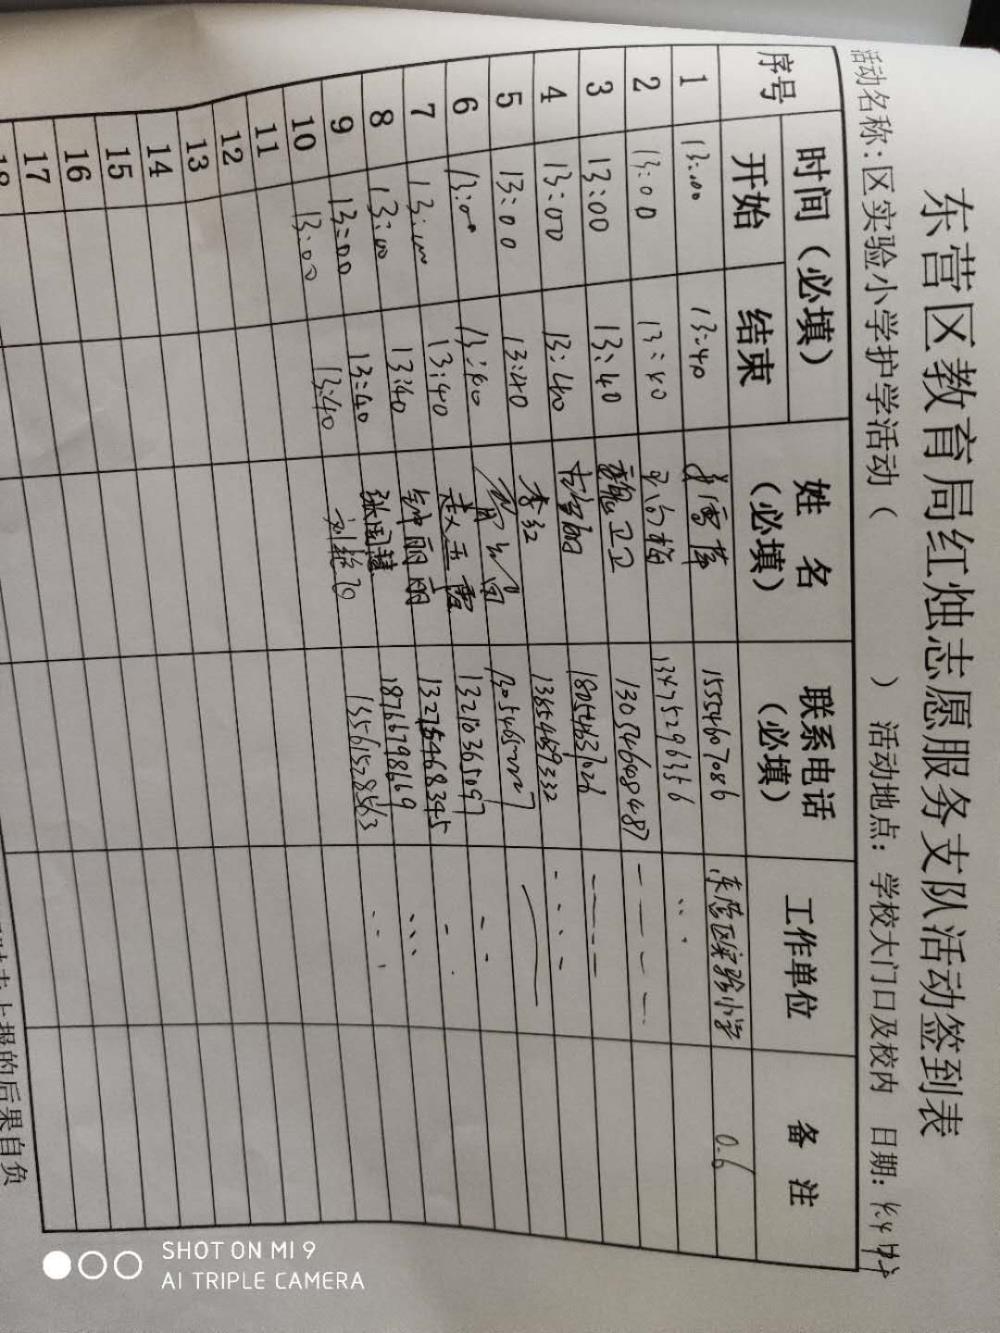 东营区教育局红烛志愿服务支队活动签到表
活动名称：区实验小学护学活动（ ） 活动地点：学校大门口及校内 日期：
序号 时间（必填） 姓名（必填） 联系电话（必填） 工作单位 备注
开始 结束
1 13:00 13:40 15554607086 东营区实验小学 0.6
2 13:00 13:40 13475296356
3 13:00 13:40 魏卫卫 13054668487
4 13:00 13:40 18054637026
5 13:00 13:40 李红 13854659332
6 13:00 13:40
7 13:00 13:40 赵玉霞 13210365097
8 13:00 13:40 钟丽丽 13275468345
9 13:00 13:40 张国慧 18766798669
10 13:00 13:40 刘艳 13561528563
11
12
13
14
15
16
17
18
上报的后果自负
SHOT ON MI 9
AI TRIPLE CAMERA